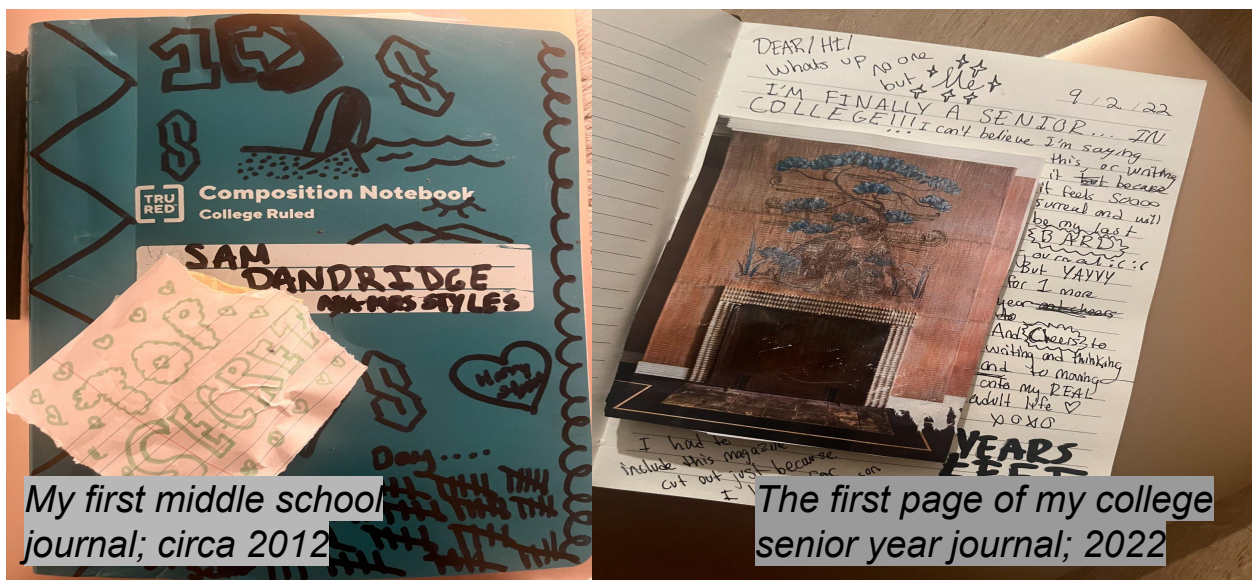 1D
S
S
TRU
RED
Composition Notebook
College Ruled
SAM
DANDRIDGE
AKA MRS STYLES
TOP
SECRET
S
Harry
Styles
Day....
My first middle school
journal; circa 2012
DEAR/HI/
Whats up no one
but Me
9/2/22
I'M FINALLY A SENIOR... IN
COLLEGE!!!
... I can't believe I'm saying
this or writing
it because
it feels soooo
surreal and will
be my last
BARD
journal :( :(
But YAYYY
for 1 more
year
And Cheers to
writing and thinking
and to moving
onto my REAL
adult life ♡
xoxo
YEARS
I had to
include this magazine
cut out just because
I
The first page of my college
senior year journal; 2022